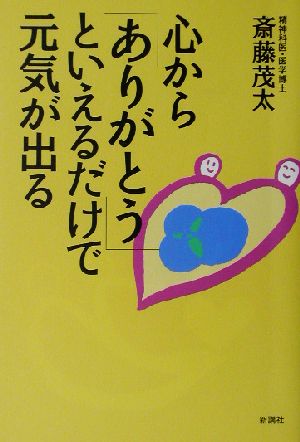 心から
「ありがとう」
といえるだけで
元気が出る
精神科医・医学博士
斎藤茂太
新講社